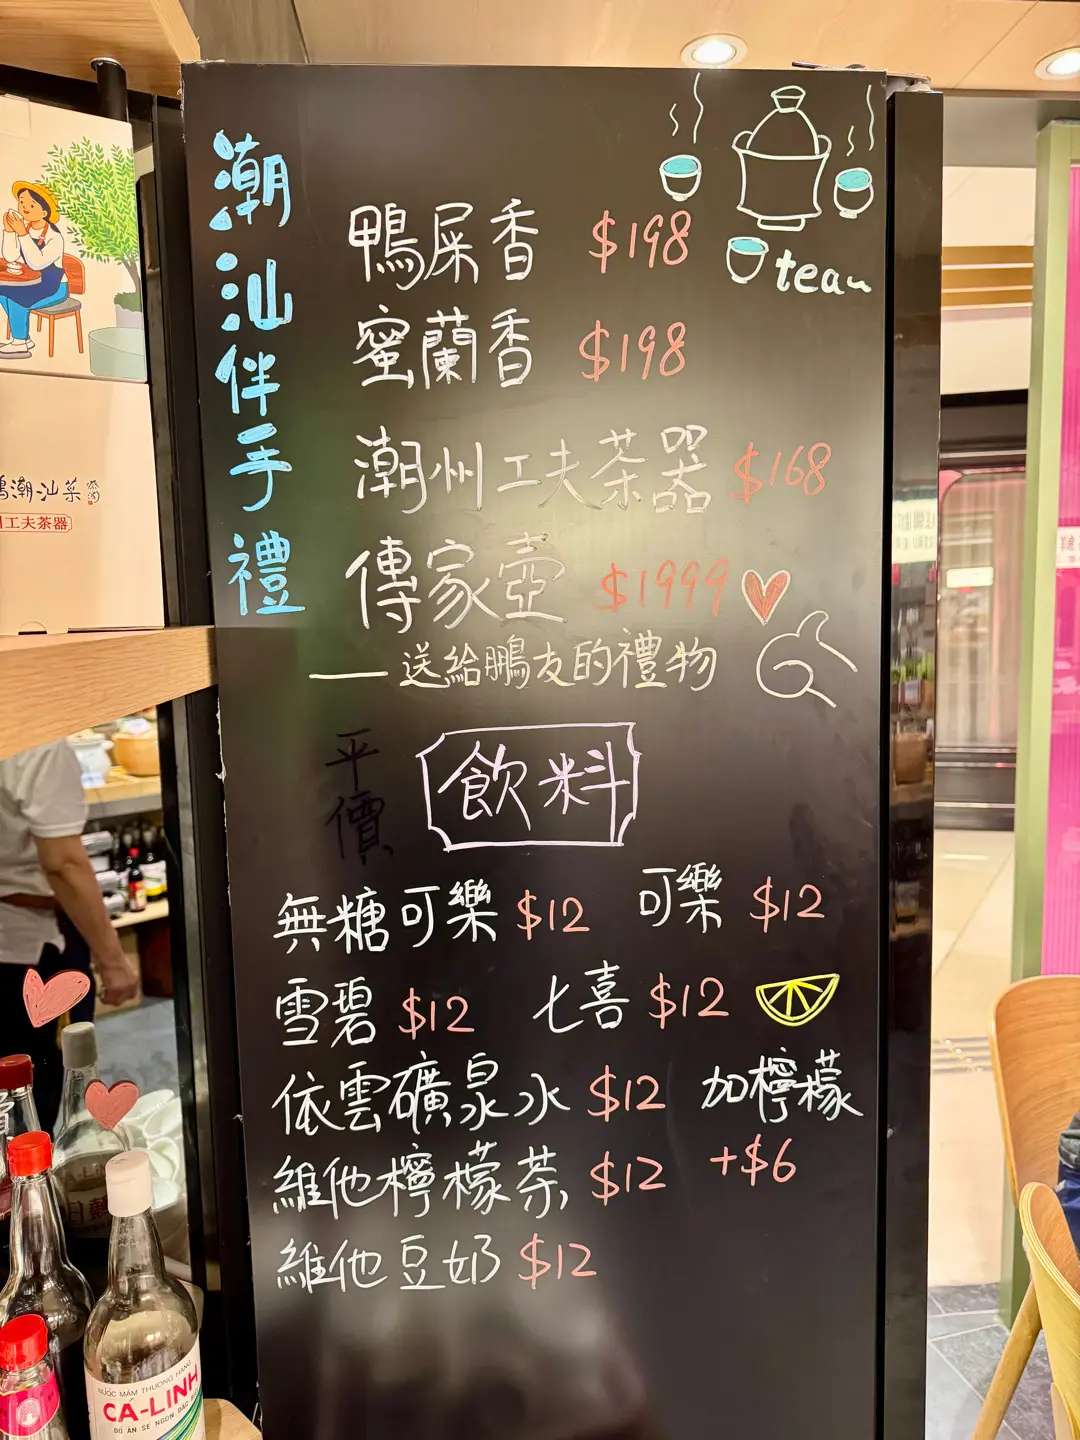 潮汕伴手禮
tea
鴨屎香 $198
蜜蘭香 $198
潮州工夫茶器 $168
傳家壺 $1999
——送給鵬友的禮物
平價
飲料
無糖可樂 $12 可樂 $12
雪碧 $12 七喜 $12
依雲礦泉水 $12 加檸檬
+$6
維他檸檬茶 $12
維他豆奶 $12
潮汕菜
工夫茶器
NƯỚC MẮM THƯỢNG HẠNG
CÁ-LINH